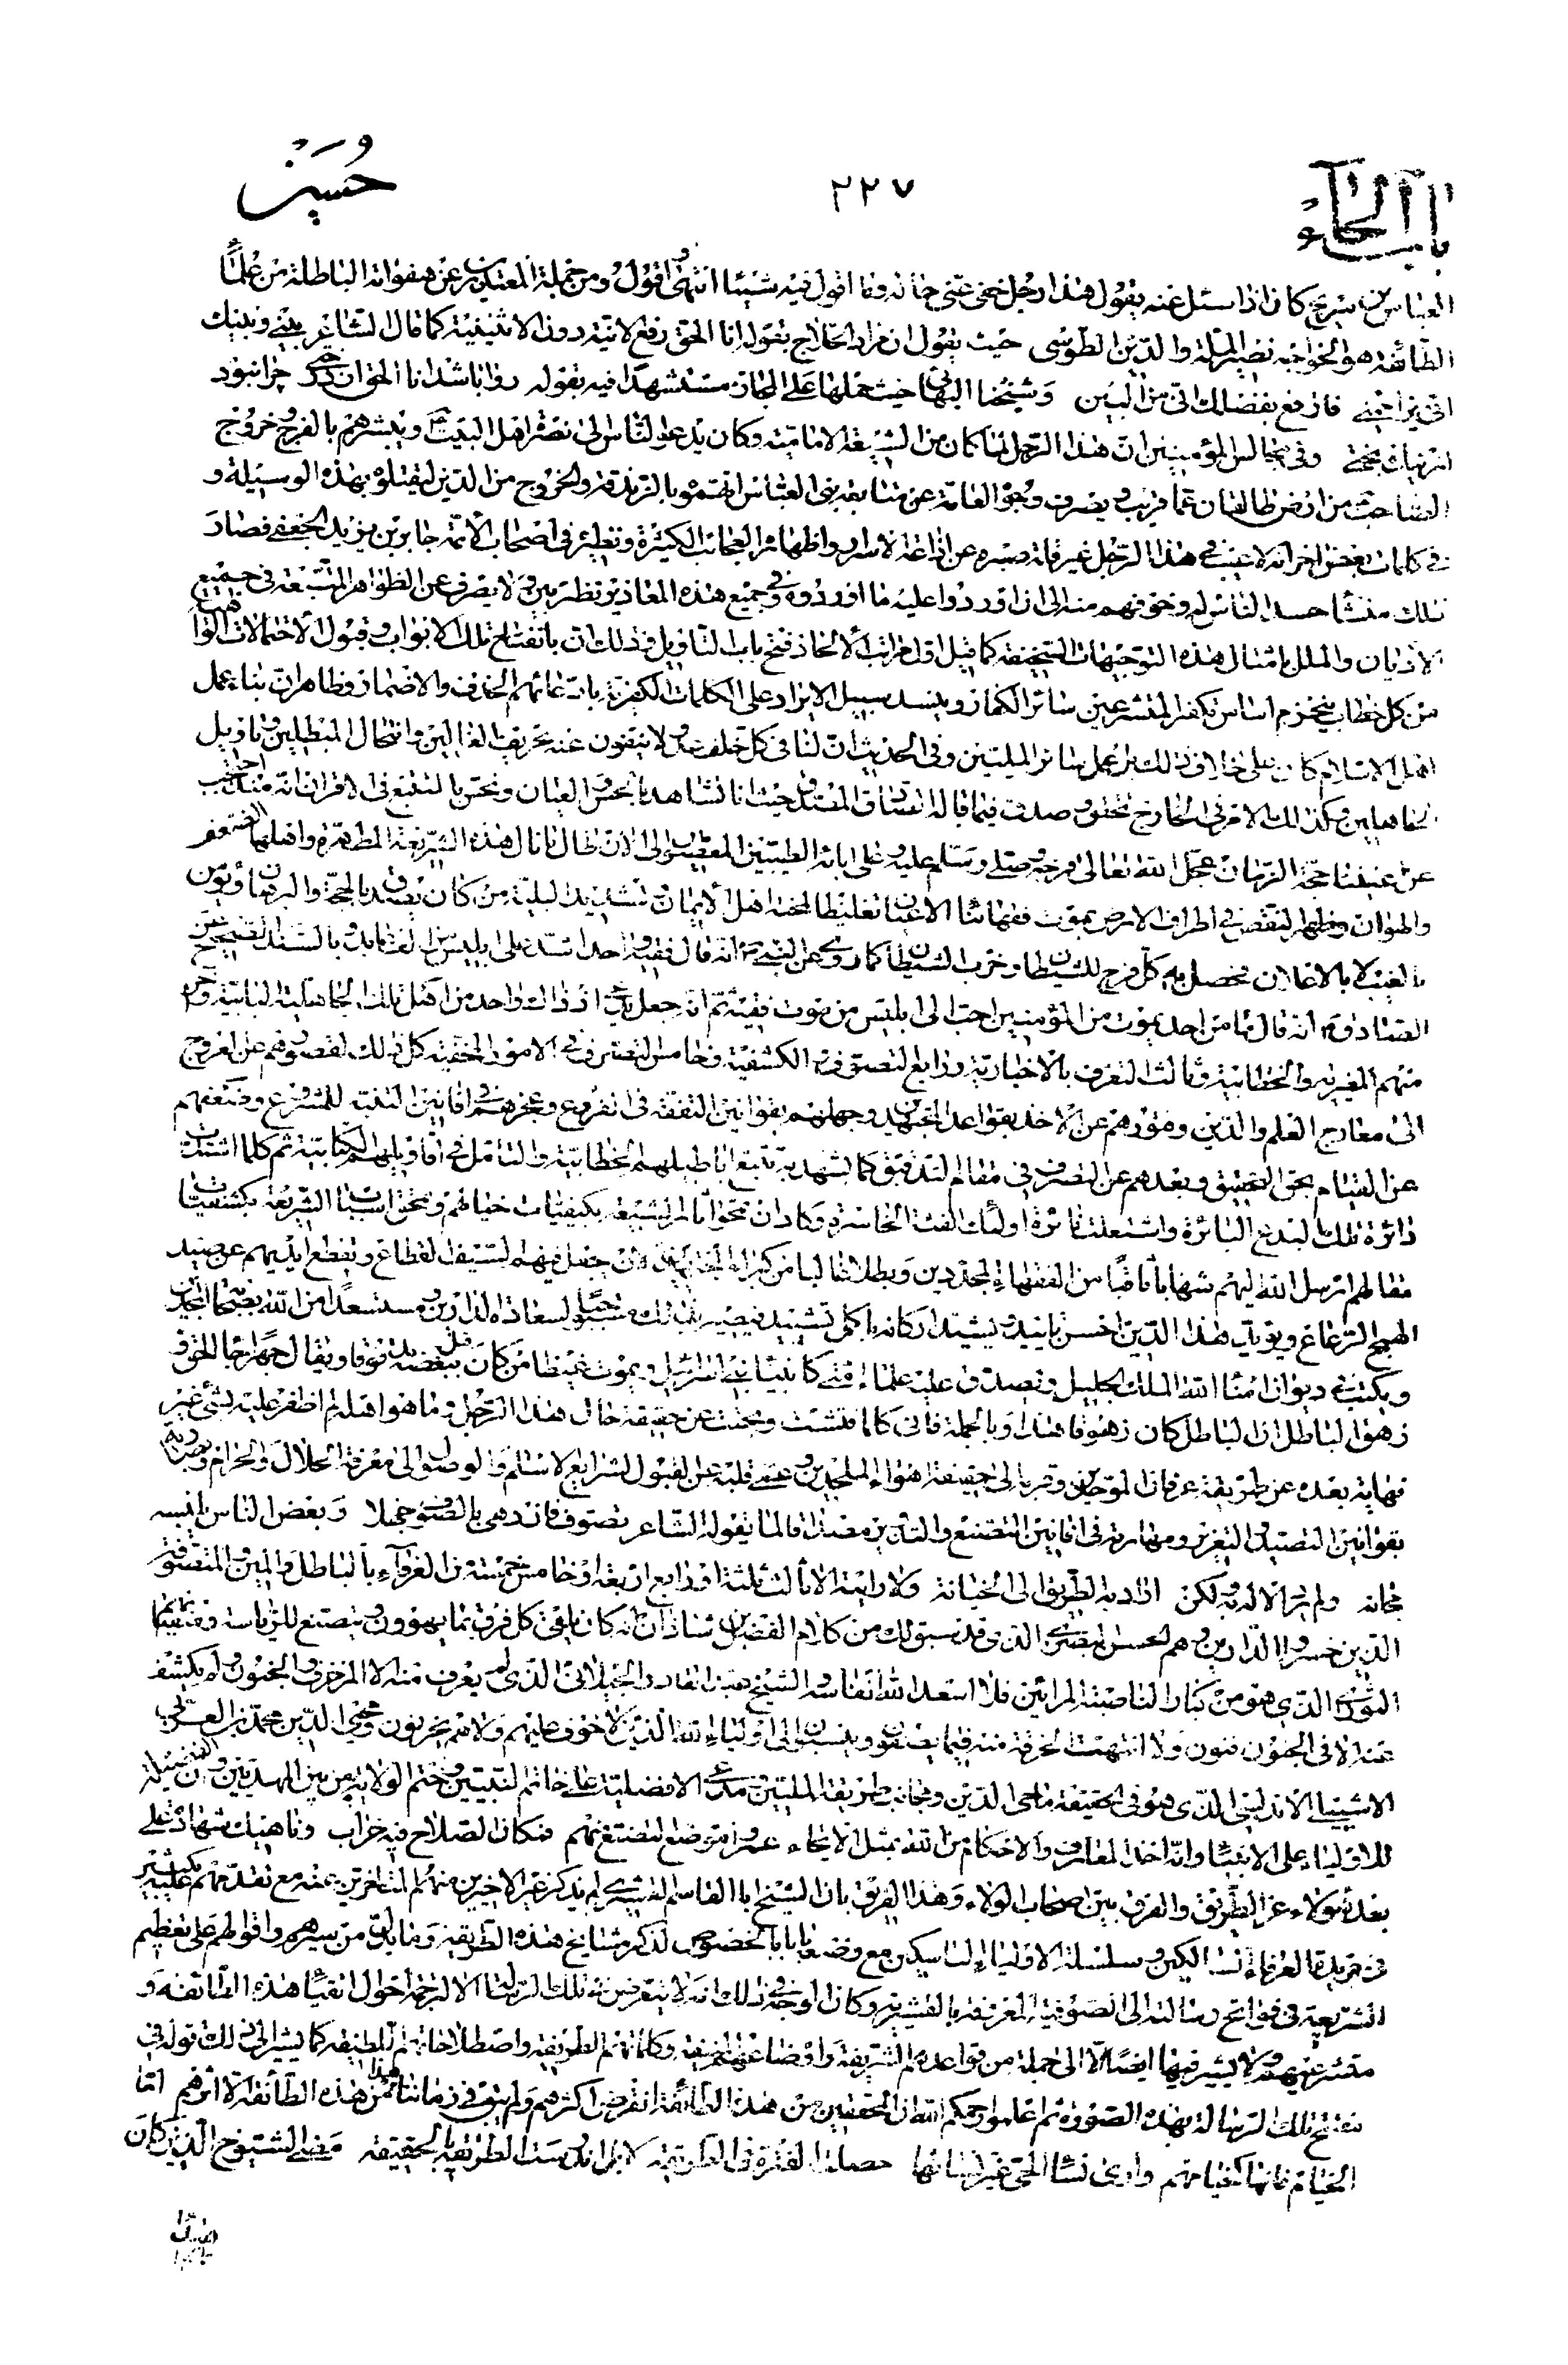 باب الحاء
٢٢٧
حسين
العباس بن سريج كان اذا سئل عنه يقول هذا رجل خفى عنى حاله وما اقول فيه شيئا انتهى واقول ومن جملة المعتذرين عن هفواته الباطلة من علماء
الطائفة هو الخواجه نصير الملة والدين الطوسى حيث يقول ان مراد الحلاج بقوله انا الحق رفع الانية دون الاثنينية كما قال الشاعر بينى وبينك
انى يزاحمنى فارفع بفضلك انى من البين وشيخنا البهائى حيث حملها على المجاز مستشهدا فيه بقوله روا باشد انا الحق از درختى چرا نبود
از نيك بختى وفى مجالس المؤمنين ان هذا الرجل لما كان من الشيعة الامامية وكان يدعو الناس الى نصرة اهل البيت ع ويبشرهم بالفرج وخروج
الصاحب من ارض طالقان عما قريب ويصرف وجوه العامة عن متابعة بنى العباس اتهموه بالزندقة والخروج من الدين ليقتلوه بهذه الوسيلة و
فى كلمات بعض اخر انه لا عيب فى هذا الرجل غير قلة صبره عن اذاعة الاسرار واظهار العجائب الكثيرة ونظيره فى اصحاب الأئمة جابر بن يزيد الجعفى فصار
ذلك منشأ حسد الناس له وخوفهم منه الى ان اوردوا عليه ما اوردوه وفى جميع هذه المعاذير نظر بين ولا يصرف عن الظواهر المتبعة فى جميع
الاديان والملل بامثال هذه التوجيهات السخيفة كما قيل اول مراتب الالحاد فتح باب التأويل وذلك ان بانفتاح تلك الابواب وقبول الاحتمالات الواهية
من كل خطاب ينخرم اساس تكفير المتشرعين سائر الكفار وينسد سبيل الايراد على الكلمات الكفرية بادعائهم الحذف والاضمار وظاهر ان بناء عمل
اهل الاسلام كان على خلاف ذلك بل عمل سائر المليين وفى الحديث ان لنا فى كل خلف عدولا ينفون عنه تحريف الغالين وانتحال المبطلين وتأويل
الجاهلين وكذلك الامر فى الخارج لتحقق صدق فيما قاله الصادق المصدق حيث انا نشاهد بالحس والعيان ونحس بالتتبع فى الاقران انه منذ احتجب
عن عيننا حجة الزمان عجل الله تعالى فرجه وصلى وسلم عليه وعلى ابائه الطيبين المعصومين الى الان طال ما نال هذه الشريعة المطهرة واهلها الضعف
والهوان وظهر النقص فى اطراف الارض بموت فقهائنا الاعيان تغليظا لمحنة اهل الايمان وتشديد البلية من كان يعبد بالحجة والبرهان ويؤمن
بالغيب لا بالاعلان يحصل به كل فرح للشيطان وحزب الشيطان كما روى عن النبى ص انه قال فقيه واحد اشد على ابليس من الف عابد وبالسند الصحيح عن
الصادق ع انه قال ما من احد يموت من المؤمنين احب الى ابليس من موت فقيه ثم انه جعل يدعى اذ ذاك واحد من اهل تلك الجاهلية النيابية واخر
منهم المغيرية والخطابية وثالث التعرف بالاخبارية ورابع التصوف والكشفية وخامس التصرف فى الامور الخفية كل ذلك لقصورهم عن العروج
الى معارج العلم والدين وفتورهم عن الاخذ بقواعد المجتهدين وجهلهم بقوانين التفقه فى الفروع وعجزهم عن افانين التنبه للمشروع وضعفهم
عن القيام بحق التحقيق وبعدهم عن التصرف فى مقام التدقيق كما يشهد به تتبع اباطيلهم الخطابية والتأمل فى اقاويلهم الكتابية ثم كلما اشتدت
نائرة تلك البدع البائرة واشتعلت نائرة اولئك الفئة الخاسرة وكاد ان تمحو آثار الشيعة بكيفيات خيالهم وتخرق استار الشريعة بكشفيات
مقالهم ارسل الله اليهم شهابا ثاقبا من الفقهاء المجددين وبطلا غالبا من كبراء المجتهدين ان جعل فيهم السيف القطاع وتقطع ايديهم عن صيد
الهمج الرعاع ويؤيد هذا الدين احسن تأييد ويشيد اركانه باكمل تشييد فيصير بذلك مستجبا لسعادة الدارين ومستسعدا من الله بصحة المجدين
ويكتب فى ديوان امناء الله الملك الجليل وتصدق عليه علماء امتى كانبياء بنى اسرائيل ويموت غيظا من كان يبغضه من قبل فوقا ويقال جهارا جاء الحق و
زهق الباطل ان الباطل كان زهوقا هذا وبالجملة فانى كلما فتشت وبحثت عن حقيقة حال هذا الرجل وما هو اهله لم اظفر عليه بشىء غير
نهاية بعده عن طريقة عرفان الموحدين وقربه الى حقيقة اهواء الملحدين وعمى قلبه عن القبول لشرايع الاسلام والوصول الى معرفة الحلال والحرام وبصارته
بقوانين التصيد والتعزير ومهارته فى افانين التصنع والتأدين مصداقا لما يقوله الشاعر تصوف فازدهى بالصوف جهلا وبعض الناس يلبسه
مجانه ولم يرد الاله به ولكن اراد به الطريق الى الخيانة ولا رايته الا ثالث ثلثة او رابع اربعة او خامس خمسة من العرفاء بالباطل والمين والمتصوفة
الذين خسروا الدارين وهم الحسن البصرى الذى قد سبق لك من كلام الفضل بن شاذان انه كان يلقى كل فرق بما يهوون ويتصنع للرياسة وسفيان
الثورى الذى هو من كبار الناصبة المرائين فلا اسعد الله انفاسه والشيخ عبد القادر الجيلانى الذى لم يعرف منه الا المزخرف والجنون ولم يكشف
عنه الا فى الجنون فنون ولا انتهت الخرقة منه فيما يصفون وينسبون الى اولياء الله الذين لا خوف عليهم ولا هم يحزنون ومحيى الدين محمد بن العربى
الاشبيلى الاندلسى الذى هو فى الحقيقة ماحى الدين ومجانب طريقة المليين مدعى الافضلية على خاتم النبيين وختم الولاية من بين المهديين وان الفضيلة
للاولياء على الانبياء وانه اخذ المعارف والاحكام من الله بمثل الايحاء عمروا موضع التصنع منهم فمكان الصلاح فيه خراب وناهيك شهادة على
بعد هؤلاء عن الطريق والفرق بين اصحاب الولاء وهذا الفريق بان الشيخ ابا القاسم القشيرى لم يذكر غير الاخيرين منهم المتأخرين عنه مع تقدمهم عليه بكثير
فى جريدة العرفاء السالكين وسلسلة الاولياء الناسكين مع وضعه بابا بالخصوص لذكر مشايخ هذه الطريقة وما يدل من سيرهم واقوالهم على تعظيم
الشريعة فى فواتح رسالته الى الصوفية المعروفة بالقشيرية وكان الوجه فى ذلك انه لا يتعرض فى تلك الرسالة الا لترجمة احوال اتقياء هذه الطائفة و
متشرعيهم ولا يشير فيها ايضا الا الى جملة من قواعدهم الشريفة واوضاعهم المنيفة وكلماتهم الطريفة واصطلاحاتهم اللطيفة كما يشير الى ذلك قوله فى
مفتتح تلك الرسالة بهذه الصورة ثم اعلموا رحمكم الله ان المحققين من هذه الطائفة انقرض اكثرهم ولم يبق فى زماننا هذا من هذه الطائفة الا اثرهم اما
الخيام فانها كخيامهم وارى نساء الحى غير نسائها حصلت الفترة فى الطريقة لا بل اندرست الطريقة بالحقيقة مضى الشيوخ الذين كان